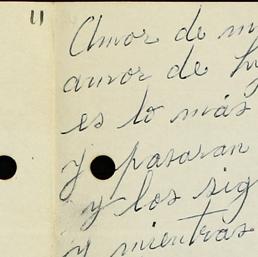 11
Amor de
amor de
es lo más
y pasaran
y los sig
y mientras